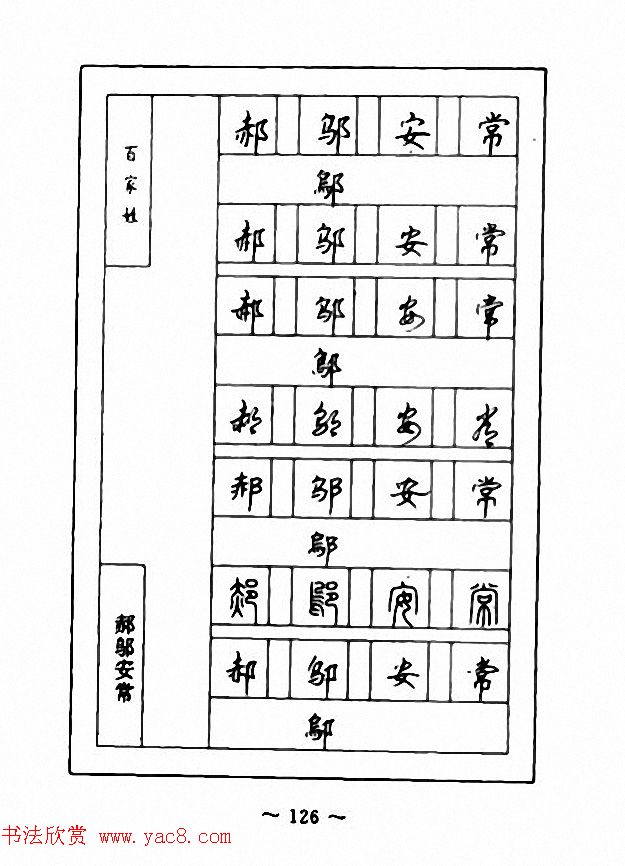 百家姓
郝邬安常
鄔
郝邬安常
郝邬安常
鄔
郝邬安常
郝邬安常
鄔
郝鄔安常
郝邬安常
鄔
郝邬安常
～ 126 ～
书法欣赏 www.yac8.com